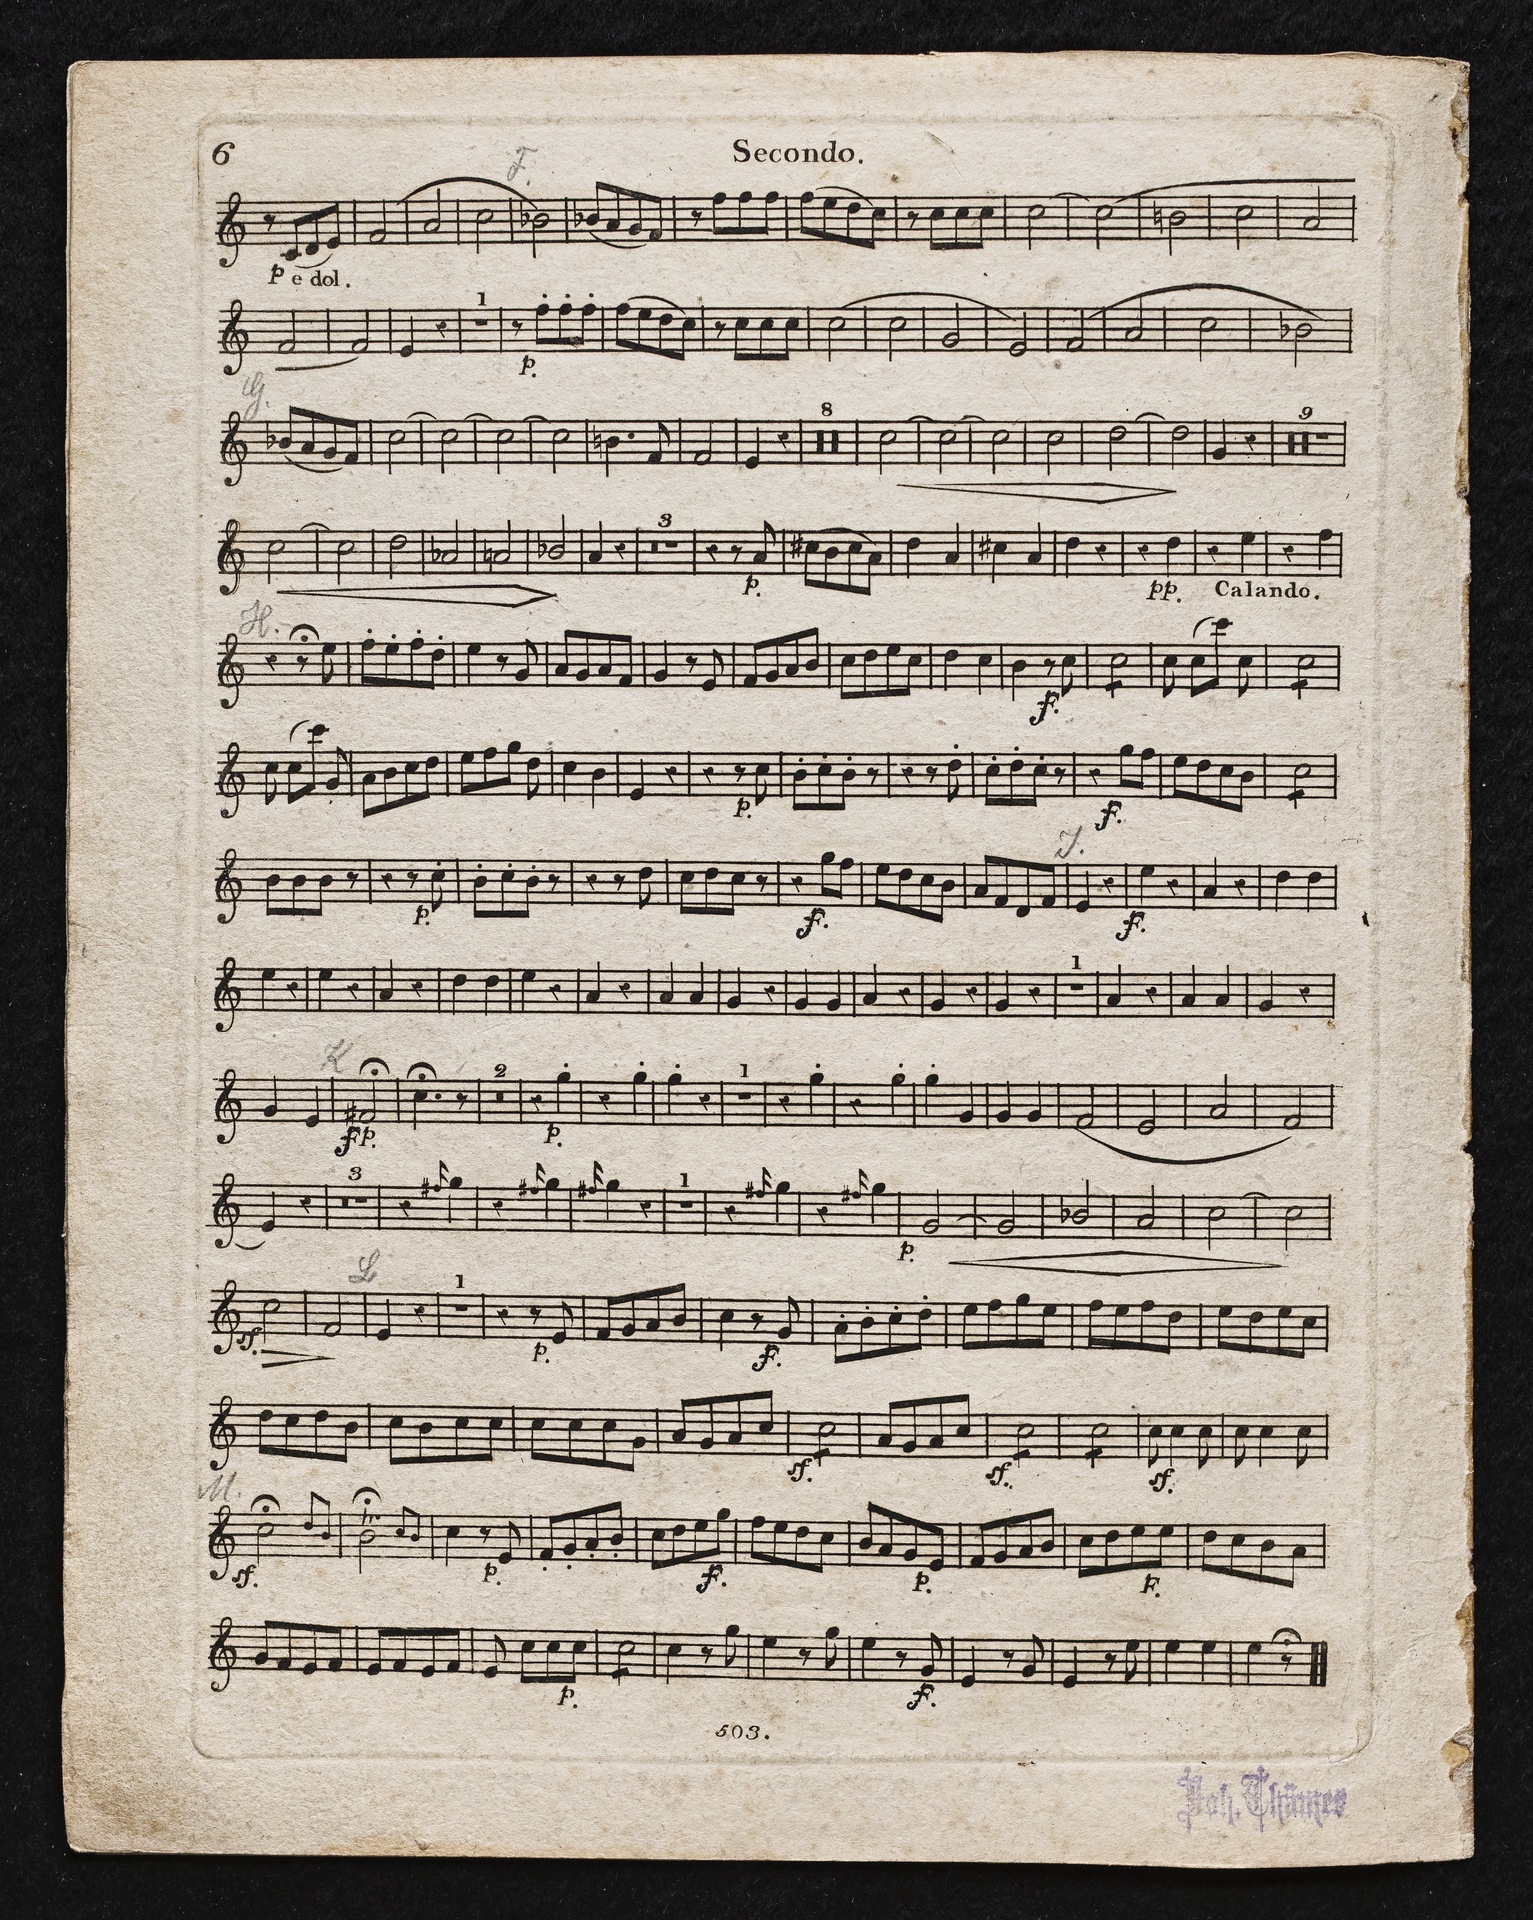 6 Secondo.
F.
p e dol.
1
p.
G.
8 9
3
p. pp. Calando.
H.
f.
p. f.
J.
p. f. f.
1
K
2 1
fp. p.
3 1
p.
L
1
sf. p. f.
sf. sf. sf.
M.
tr
sf. p. f. p. F.
p. f.
503.
Joh. Thämes